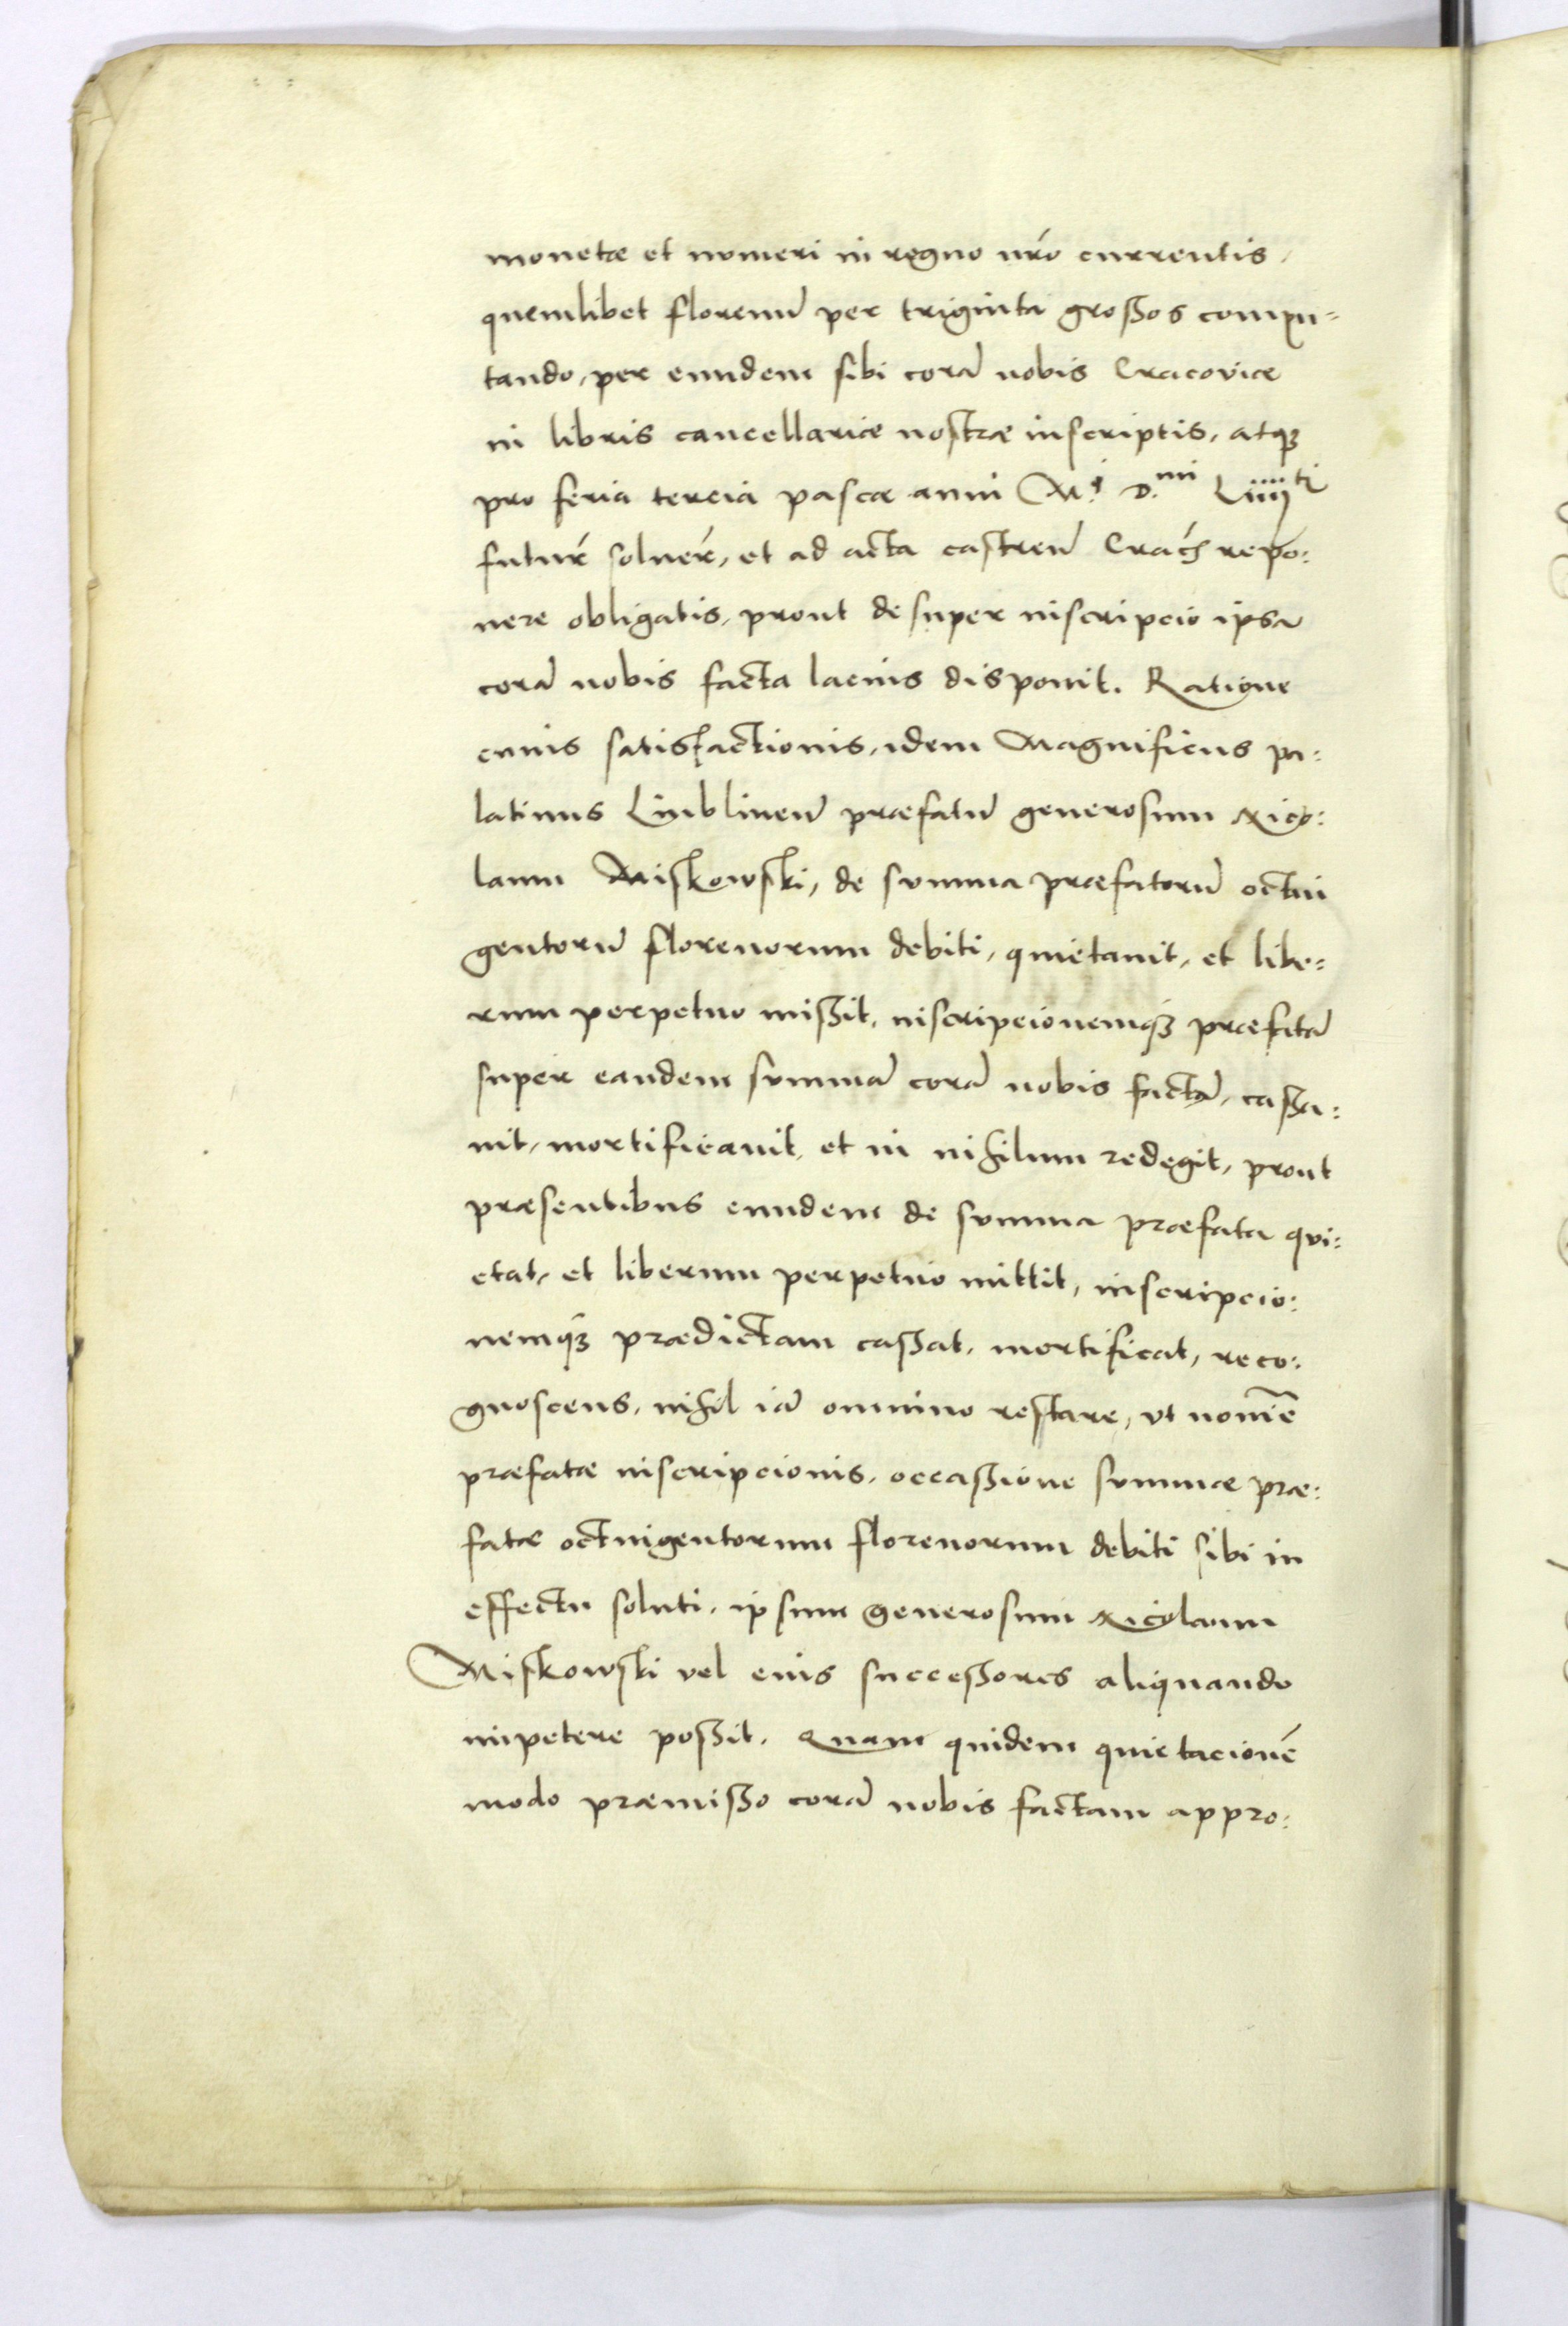 monetæ et numeri in regno nr̃o currentis,
quemlibet florenũ per triginta großos compu-
tando, per eundem sibi corã nobis Cracoviæ
in libris cancellariæ nostræ inscriptis, atqȝ
pro feria tercia pascæ anni Mⁱ D.ᵐⁱ Liiiiᵗⁱ
futur̃ soluer̃, et ad acta castreñ Crac̃ repo:
nere obligatis, prout desuper inscripcio ipsa
corã nobis facta lacius disponit. Ratione
cuius satisfactionis, idem Magnificus pa:
latinus Lublineñ præfatũ generosum Nico:
laum Miskowski, de summa præfatorũ octin
gentorũ florenorum debiti, quietauit, et libe-
rum perpetuo mißit, inscripcionemqȝ præfatã
super eandem summã corã nobis factã, caßa:
uit, mortificauit, et in nihilum redegit, prout
præsentibus eundem de summa præfata qui:
etat, et liberum perpetuo mittit, inscripcio:
nemqȝ prædictam caßat, mortificat, reco:
gnoscens, nihil iã omnino restare, ut nomĩe
præfatæ inscripcionis, occaßione summæ præ:
fatæ octingentorum florenorum debiti sibi in
effectu soluti, ipsum generosum Nicolaum
Miskowski vel eius succeßores aliquando
impetere poßit. Quam quidem quietacionẽ
modo præmißo corã nobis factam appro: